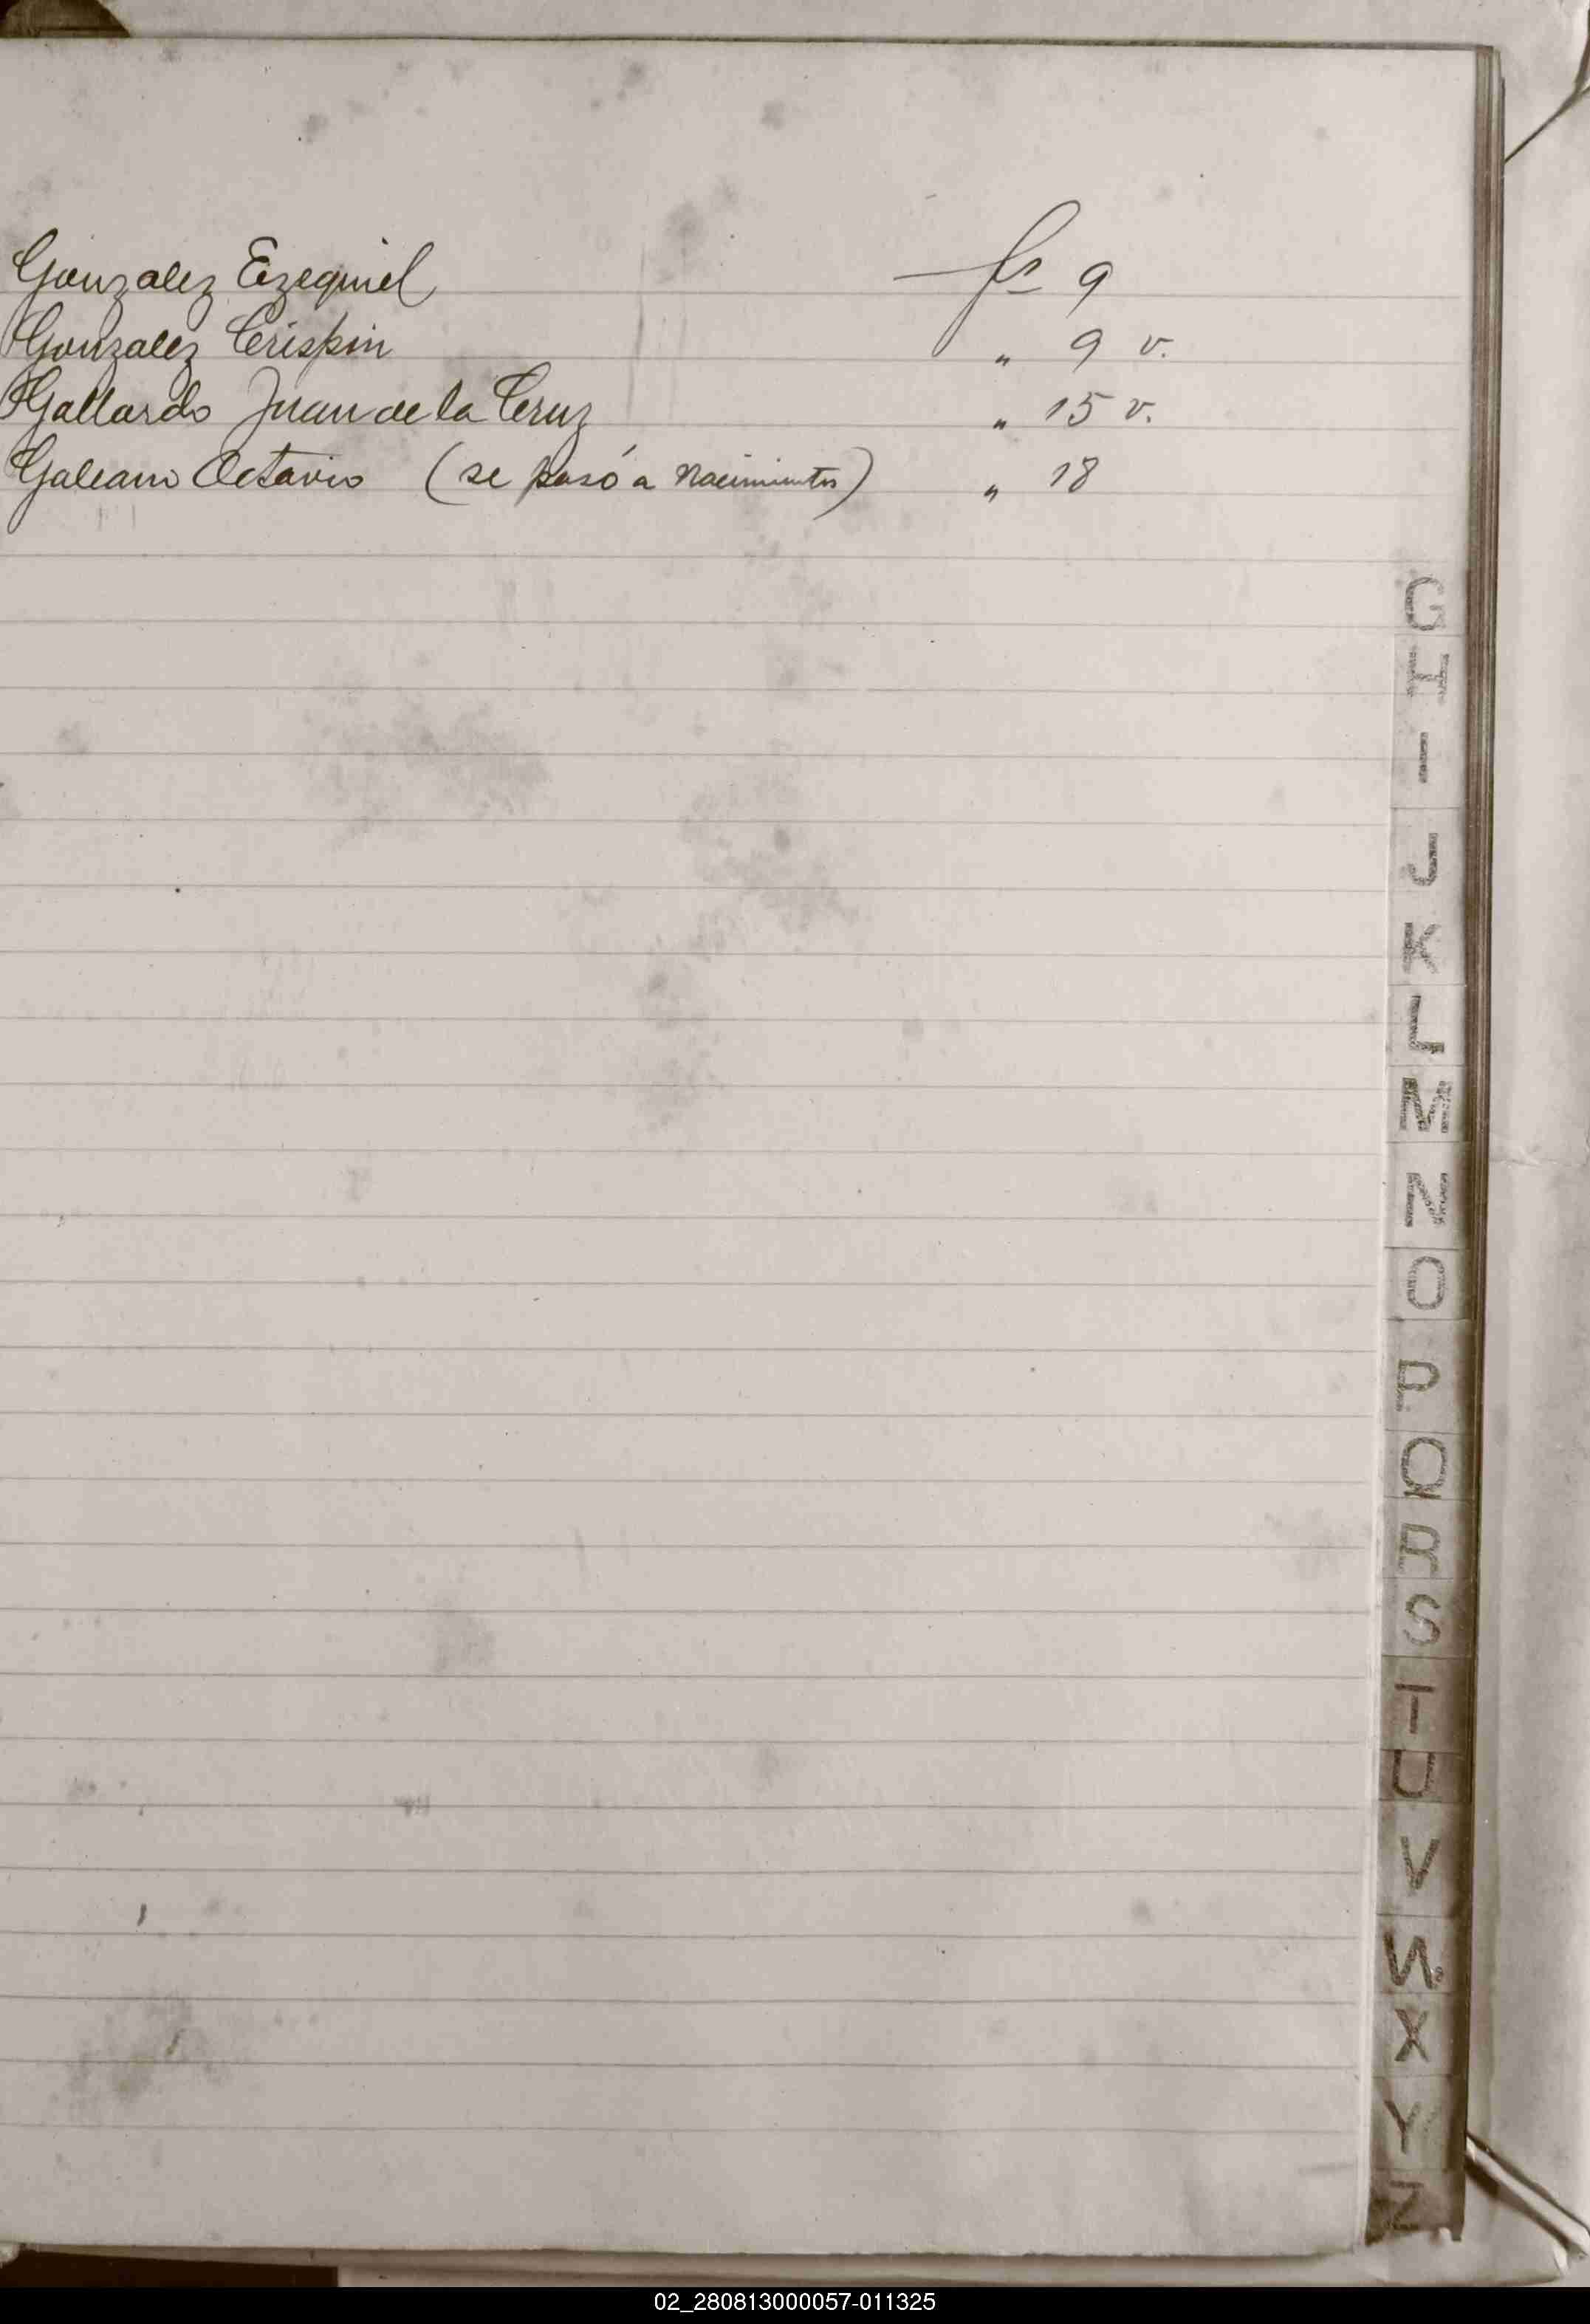 Gonzalez Ezequiel — fs 9
Gonzalez Crispin " 9 v.
Gallardo Juan de la Cruz " 15 v.
Galeano Octavio (se pasó a Nacimientos) " 18
G
H
I
J
K
L
M
N
O
P
Q
R
S
T
U
V
W
X
Y
Z
02_280813000057-011325